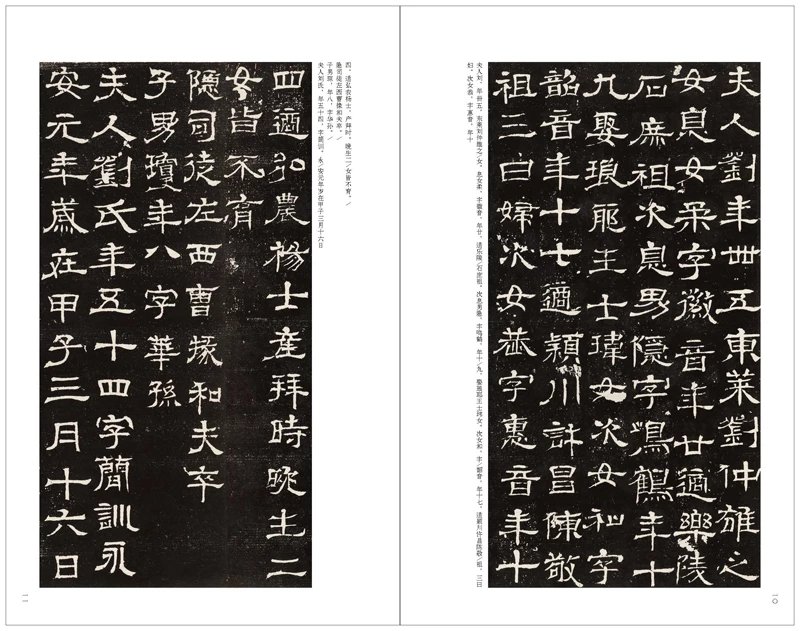 夫人劉年卌五東萊劉仲雄之
女息女柔字徽音年廿適樂陵
石庶祖次息男隱字鳴鶴年十
九娶琅耶王士瑋女次女和字
韶音年十七適潁川許昌陳敬
祖三日婦次女恭字惠音年十
夫人刘,年卅五,东莱刘仲雄之/女。息女柔,字徽音,年廿,适乐陵/石庶祖。次息男隐,字鸣鹤,年十/九,娶琅耶王士玮女。次女和,字/韶音,年十七,适颍川许昌陈敬/祖,三日
妇。次女恭,字惠音,年十
一〇
四,适弘农杨士产拜时。晚生二/女皆不育。/
隐司徒左西曹掾和夫卒。/
子男琼,年八,字华孙。/
夫人刘氏,年五十四,字简训。永/安元年岁在甲子三月十六日
四適弘農楊士產拜時晚生二
女皆不育
隱司徒左西曹掾和夫卒
子男瓊年八字華孫
夫人劉氏年五十四字簡訓永
安元年歲在甲子三月十六日
一一